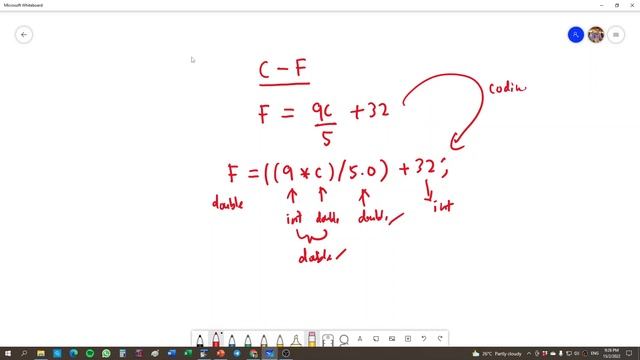 Microsoft Whiteboard
C - F
F = 9C/5 + 32
codin
F = ((9 * C) / 5.0) + 32;
double
int double double ✓ int
double ✓
26°C Partly cloudy
9:26 PM
15/2/2022